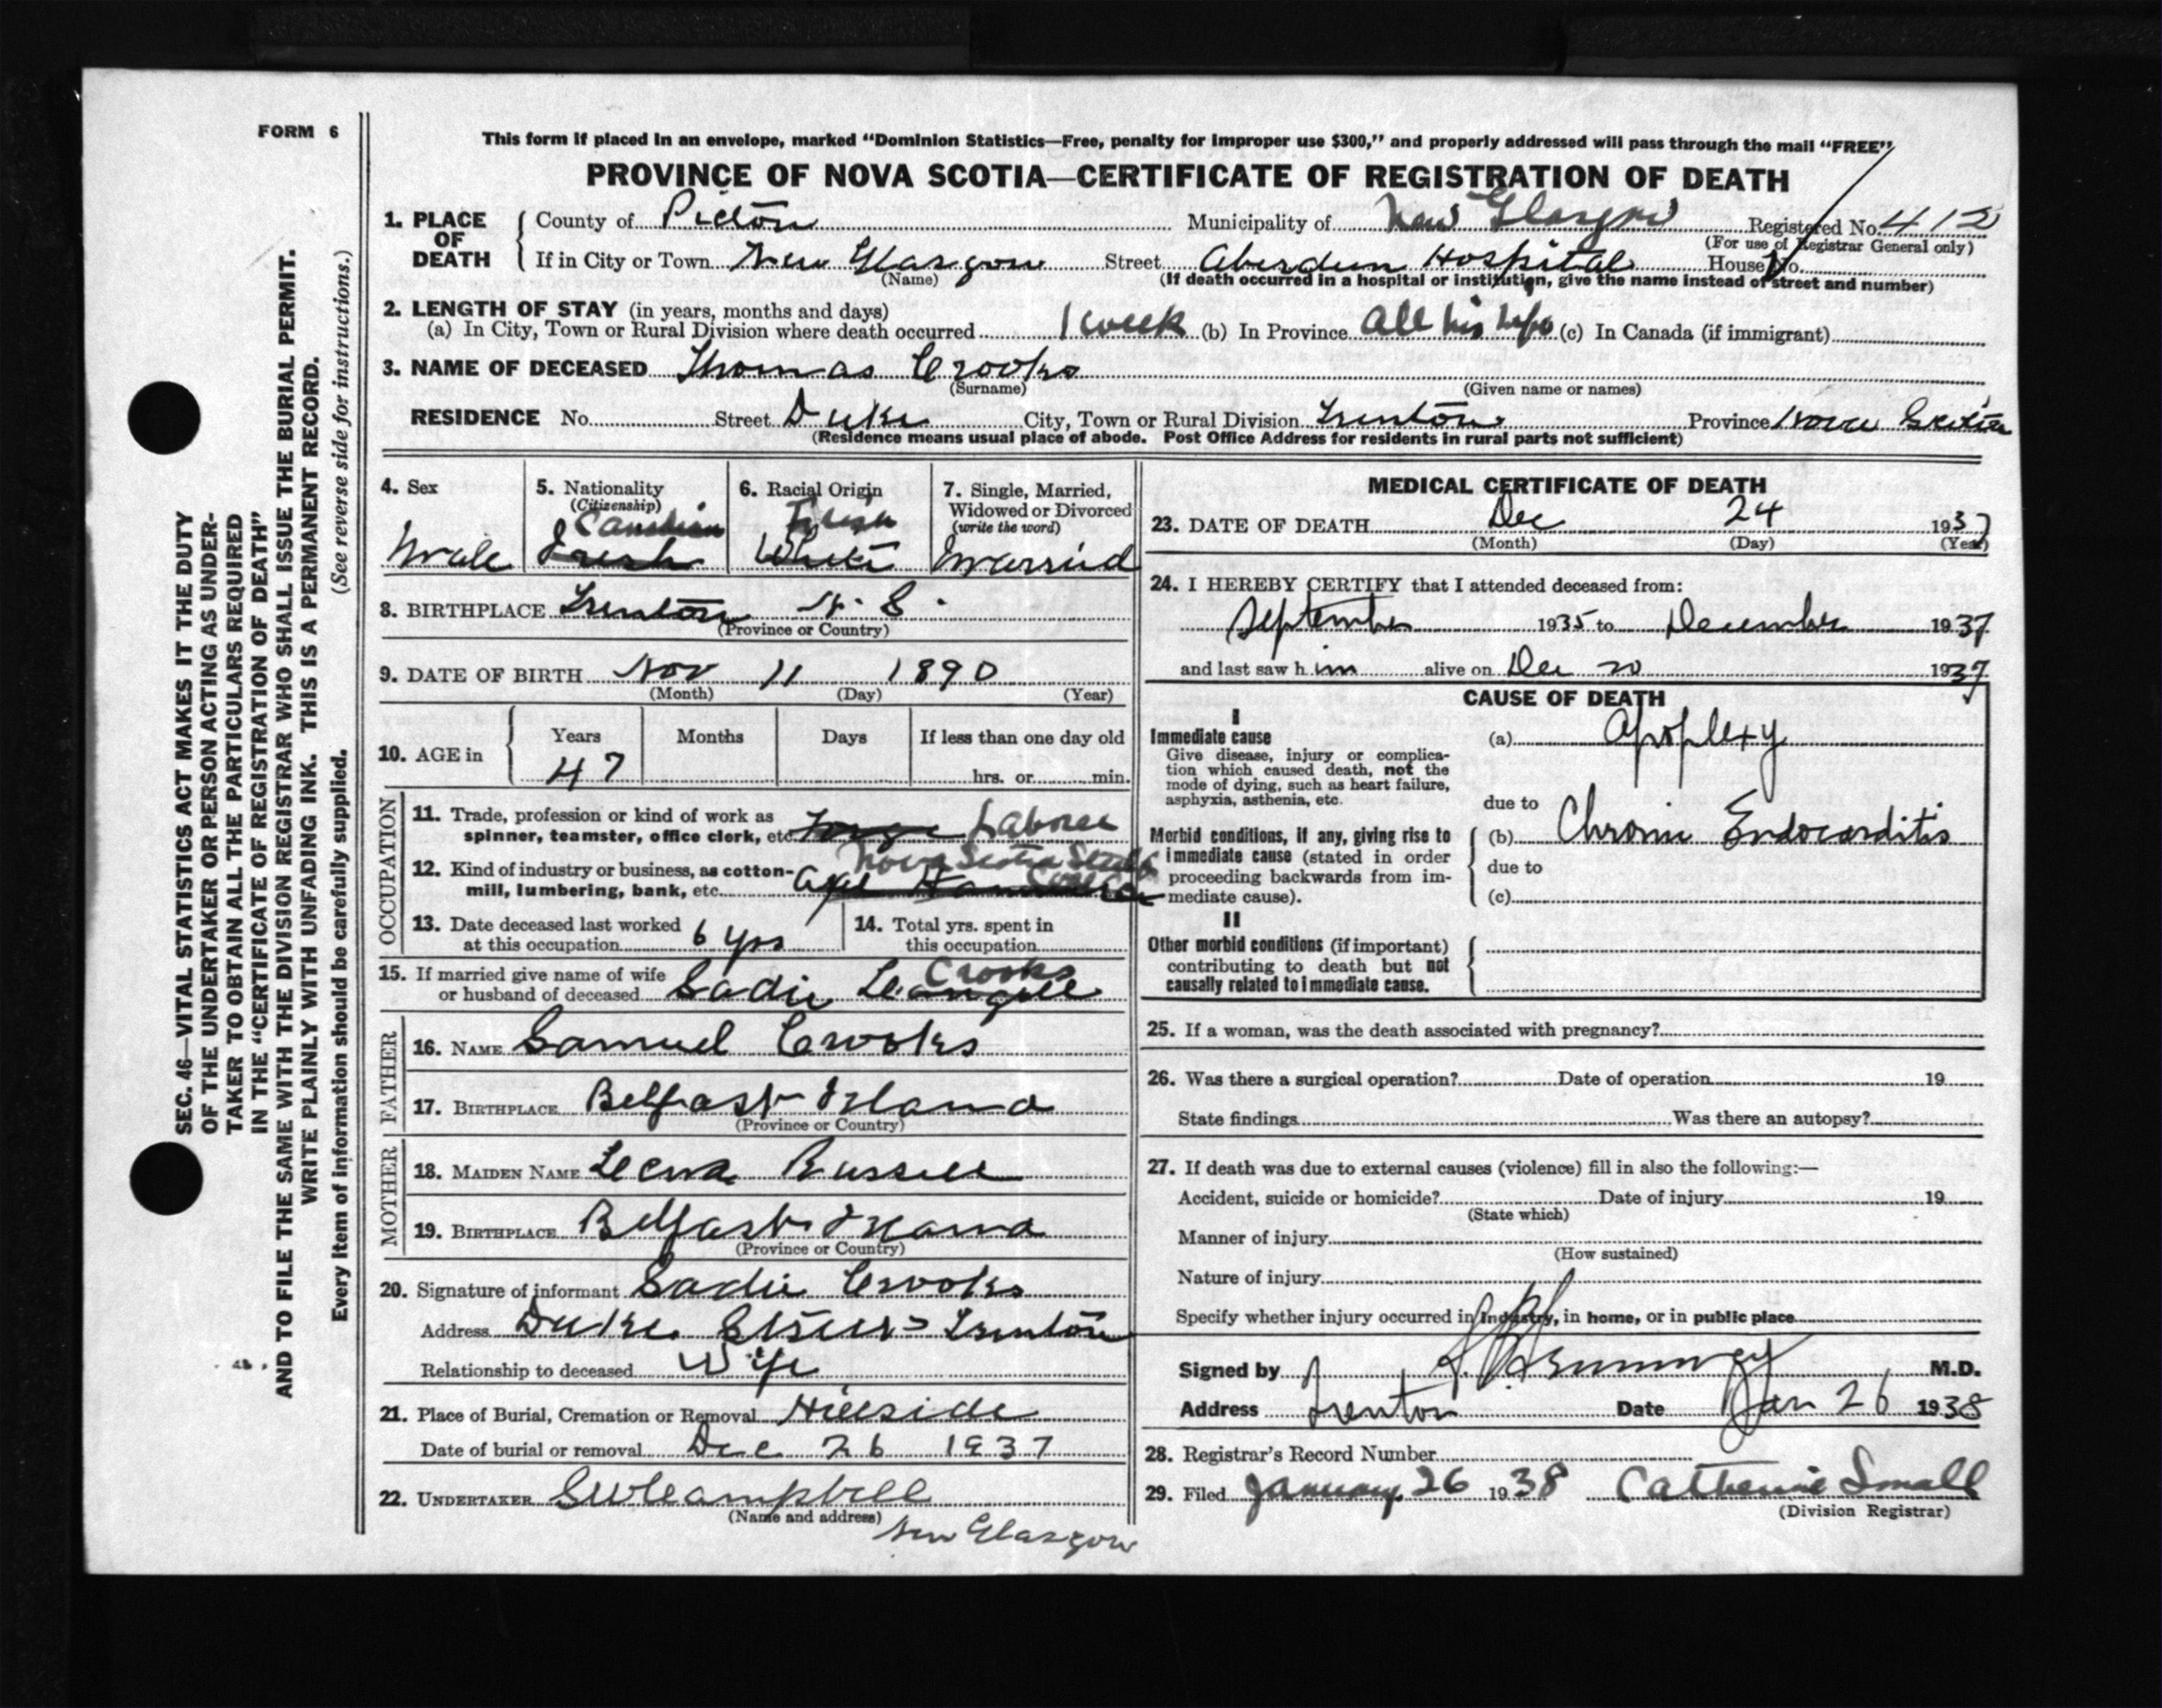 FORM 6
This form if placed in an envelope, marked "Dominion Statistics—Free, penalty for improper use $300," and properly addressed will pass through the mail "FREE"
PROVINCE OF NOVA SCOTIA—CERTIFICATE OF REGISTRATION OF DEATH
1. PLACE OF DEATH County of Pictou Municipality of New Glasgow Registered No. 412
(For use of Registrar General only)
If in City or Town New Glasgow Street Aberdeen Hospital House No.
(Name) (If death occurred in a hospital or institution, give the name instead of street and number)
2. LENGTH OF STAY (in years, months and days)
(a) In City, Town or Rural Division where death occurred 1 week (b) In Province All his life (c) In Canada (if immigrant)
3. NAME OF DECEASED Thomas Crooks
(Surname) (Given name or names)
RESIDENCE No. Street Duke City, Town or Rural Division Trenton Province Nova Scotia
(Residence means usual place of abode. Post Office Address for residents in rural parts not sufficient)
4. Sex
Male
5. Nationality
(Citizenship)
Canadian
Irish
6. Racial Origin
Irish
White
7. Single, Married,
Widowed or Divorced
(write the word)
Married
8. BIRTHPLACE Trenton N. S.
(Province or Country)
9. DATE OF BIRTH Nov 11 1890
(Month) (Day) (Year)
10. AGE in Years Months Days If less than one day old
47 hrs. or min.
OCCUPATION
11. Trade, profession or kind of work as
spinner, teamster, office clerk, etc. Forge Laborer
12. Kind of industry or business, as cotton- Nova Scotia Steel &
mill, lumbering, bank, etc. Coal Co
13. Date deceased last worked
at this occupation 6 yrs
14. Total yrs. spent in
this occupation
15. If married give name of wife Crooks
or husband of deceased Sadie
FATHER
16. NAME Samuel Crooks
17. BIRTHPLACE Belfast Ireland
(Province or Country)
MOTHER
18. MAIDEN NAME Leena Russell
19. BIRTHPLACE Belfast Ireland
(Province or Country)
20. Signature of informant Sadie Crooks
Address Duke Street Trenton
Relationship to deceased Wife
21. Place of Burial, Cremation or Removal Hillside
Date of burial or removal Dec 26 1937
22. UNDERTAKER Campbell
(Name and address)
New Glasgow
MEDICAL CERTIFICATE OF DEATH
23. DATE OF DEATH Dec 24 1937
(Month) (Day) (Year)
24. I HEREBY CERTIFY that I attended deceased from:
September 1935 to December 1937
and last saw him alive on Dec 20 1937
CAUSE OF DEATH
I
Immediate cause
Give disease, injury or complica-
tion which caused death, not the
mode of dying, such as heart failure,
asphyxia, asthenia, etc.
(a) Apoplexy
due to
Morbid conditions, if any, giving rise to
immediate cause (stated in order
proceeding backwards from im-
mediate cause).
(b) Chronic Endocarditis
due to
(c)
II
Other morbid conditions (if important)
contributing to death but not
causally related to immediate cause.
25. If a woman, was the death associated with pregnancy?
26. Was there a surgical operation? Date of operation 19
State findings Was there an autopsy?
27. If death was due to external causes (violence) fill in also the following:—
Accident, suicide or homicide? Date of injury 19
(State which)
Manner of injury
(How sustained)
Nature of injury
Specify whether injury occurred in industry, in home, or in public place
Signed by M.D.
Address Trenton Date Jan 26 1938
28. Registrar's Record Number
29. Filed January 26 1938 Catherine Small
(Division Registrar)
SEC. 46—VITAL STATISTICS ACT MAKES IT THE DUTY
OF THE UNDERTAKER OR PERSON ACTING AS UNDER-
TAKER TO OBTAIN ALL THE PARTICULARS REQUIRED
IN THE "CERTIFICATE OF REGISTRATION OF DEATH"
AND TO FILE THE SAME WITH THE DIVISION REGISTRAR WHO SHALL ISSUE THE BURIAL PERMIT.
WRITE PLAINLY WITH UNFADING INK. THIS IS A PERMANENT RECORD.
Every item of information should be carefully supplied. (See reverse side for instructions.)